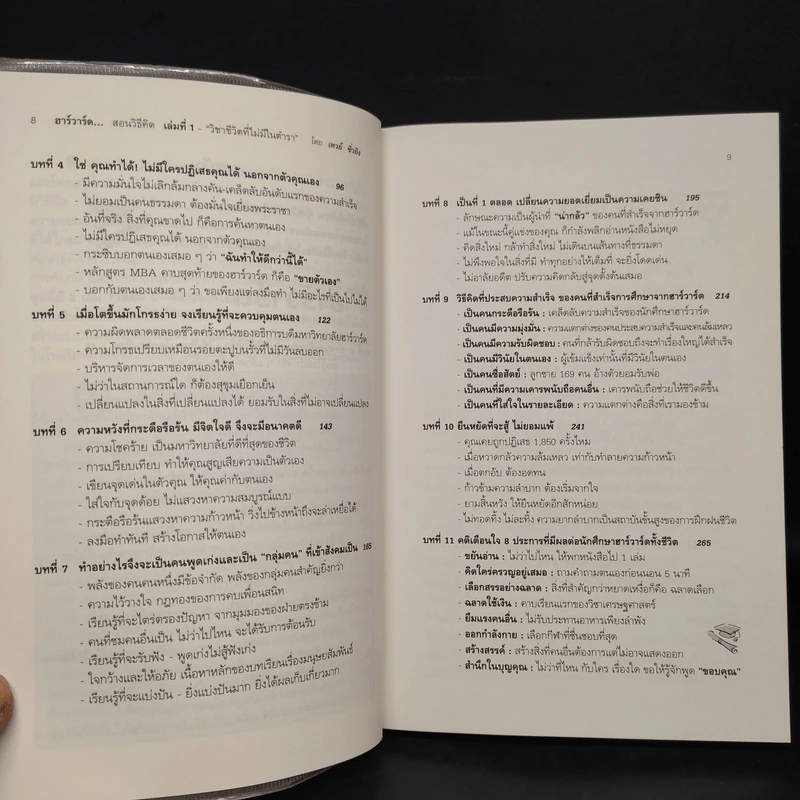 8 ฮาร์วาร์ด... สอนวิธีคิด เล่มที่ 1 - "วิชาชีวิตที่ไม่มีในตำรา" โดย เหวย์ ซิ่วอิง
บทที่ 4 ใช่ คุณทำได้! ไม่มีใครปฏิเสธคุณได้ นอกจากตัวคุณเอง 96
- มีความมั่นใจไม่เลิกล้มกลางคัน-เคล็ดลับอันดับแรกของความสำเร็จ
- ไม่ยอมเป็นคนธรรมดา ต้องมั่นใจเยี่ยงพระราชา
- อันที่จริง สิ่งที่คุณขาดไป ก็คือการค้นหาตนเอง
- ไม่มีใครปฏิเสธคุณได้ นอกจากตัวคุณเอง
- กระซิบบอกตนเองเสมอ ๆ ว่า "ฉันทำให้ดีกว่านี้ได้"
- หลักสูตร MBA คาบสุดท้ายของฮาร์วาร์ด ก็คือ "ขายตัวเอง"
- บอกกับตนเองเสมอ ๆ ว่า ขอเพียงแต่ลงมือทำ ไม่มีอะไรที่เป็นไปไม่ได้
บทที่ 5 เมื่อโตขึ้นมักโกรธง่าย จงเรียนรู้ที่จะควบคุมตนเอง 122
- ความผิดพลาดตลอดชีวิตครั้งหนึ่งของอธิการบดีมหาวิทยาลัยฮาร์วาร์ด
- ความโกรธเปรียบเหมือนรอยตะปูบนรั้วที่ไม่มีวันลบออก
- บริหารจัดการเวลาของตนเองให้ดี
- ไม่ว่าในสถานการณ์ใด ก็ต้องสุขุมเยือกเย็น
- เปลี่ยนแปลงในสิ่งที่เปลี่ยนแปลงได้ ยอมรับในสิ่งที่ไม่อาจเปลี่ยนแปลง
บทที่ 6 ความหวังที่กระตือรือร้น มีจิตใจดี จึงจะมีอนาคตดี 143
- ความโชคร้าย เป็นมหาวิทยาลัยที่ดีที่สุดของชีวิต
- การเปรียบเทียบ ทำให้คุณสูญเสียความเป็นตัวเอง
- เขียนจุดเด่นในตัวคุณ ให้คุณค่ากับตนเอง
- ใส่ใจกับจุดด้อย ไม่แสวงหาความสมบูรณ์แบบ
- กระตือรือร้นแสวงหาความก้าวหน้า วิ่งไปข้างหน้าถึงจะล่าเหยื่อได้
- ลงมือทำทันที สร้างโอกาสให้ตนเอง
บทที่ 7 ทำอย่างไรจึงจะเป็นคนพูดเก่งและเป็น "กลุ่มคน" ที่เข้าสังคมเป็น 165
- พลังของคนคนหนึ่งมีข้อจำกัด พลังของกลุ่มคนสำคัญยิ่งกว่า
- ความไว้วางใจ กฎทองของการคบเพื่อนสนิท
- เรียนรู้ที่จะไตร่ตรองปัญหา จากมุมมองของฝ่ายตรงข้าม
- คนที่ชมคนอื่นเป็น ไม่ว่าไปไหน จะได้รับการต้อนรับ
- เรียนรู้ที่จะรับฟัง - พูดเก่งไม่สู้ฟังเก่ง
- ใจกว้างและให้อภัย เนื้อหาหลักของบทเรียนเรื่องมนุษยสัมพันธ์
- เรียนรู้ที่จะแบ่งปัน - ยิ่งแบ่งปันมาก ยิ่งได้ผลเก็บเกี่ยวมาก
9
บทที่ 8 เป็นที่ 1 ตลอด เปลี่ยนความยอดเยี่ยมเป็นความเคยชิน 195
- ลักษณะความเป็นผู้นำที่ "น่ากลัว" ของคนที่สำเร็จจากฮาร์วาร์ด
- แม้ในขณะนี้คู่แข่งของคุณ ก็กำลังพลิกอ่านหนังสือไม่หยุด
- คิดสิ่งใหม่ กล้าทำสิ่งใหม่ ไม่เดินบนเส้นทางที่ธรรมดา
- ไม่พึงพอใจในสิ่งที่มี ทำทุกอย่างให้เต็มที่ จะยิ่งโดดเด่น
- ไม่อาลัยอดีต ปรับความคิดกลับสู่จุดตั้งต้นเสมอ
บทที่ 9 วิธีคิดที่ประสบความสำเร็จ ของคนที่สำเร็จการศึกษาจากฮาร์วาร์ด 214
- เป็นคนกระตือรือร้น : เคล็ดลับความสำเร็จของนักศึกษาฮาร์วาร์ด
- เป็นคนมีความมุ่งมั่น : ความแตกต่างของคนประสบความสำเร็จและคนล้มเหลว
- เป็นคนมีความรับผิดชอบ : คนที่กล้ารับผิดชอบถึงจะทำเรื่องใหญ่ได้สำเร็จ
- เป็นคนมีวินัยในตนเอง : ผู้เข้มแข็งเท่านั้นที่มีวินัยในตนเอง
- เป็นคนซื่อสัตย์ : ลูกชาย 169 คน อ้างตัวยอมรับพ่อ
- เป็นคนที่มีความเคารพนับถือคนอื่น : เคารพนับถือช่วยให้ชีวิตดีขึ้น
- เป็นคนที่ใส่ใจในรายละเอียด : ความแตกต่างคือสิ่งที่เรามองข้าม
บทที่ 10 ยืนหยัดที่จะสู้ ไม่ยอมแพ้ 241
- คุณเคยถูกปฏิเสธ 1,850 ครั้งไหม
- เมื่อหวาดกลัวความล้มเหลว เท่ากับทำลายความก้าวหน้า
- เมื่อตกอับ ต้องอดทน
- ก้าวข้ามความลำบาก ต้องเริ่มจากใจ
- ยามสิ้นหวัง ให้ยืนหยัดอีกสักหน่อย
- ไม่ทอดทิ้ง ไม่ละทิ้ง ความยากลำบากเป็นสถาบันขั้นสูงของการฝึกฝนชีวิต
บทที่ 11 คติเตือนใจ 8 ประการที่มีผลต่อนักศึกษาฮาร์วาร์ดทั้งชีวิต 265
- ขยันอ่าน : ไม่ว่าไปไหน ให้พกหนังสือไป 1 เล่ม
- คิดใคร่ครวญอยู่เสมอ : ถามคำถามตนเองก่อนนอน 5 นาที
- เลือกสรรอย่างฉลาด : สิ่งที่สำคัญกว่าหยาดเหงื่อก็คือ ฉลาดเลือก
- ฉลาดใช้เงิน : คาบเรียนแรกของวิชาเศรษฐศาสตร์
- ยืมแรงคนอื่น : ไม่รับประทานอาหารเพียงลำพัง
- ออกกำลังกาย : เลือกกีฬาที่ชื่นชอบที่สุด
- สร้างสรรค์ : สิ่งที่คนอื่นต้องการแต่ไม่อาจแสดงออก
- สำนึกในบุญคุณ : ไม่ว่าที่ไหน กับใคร เรื่องใด ขอให้รู้จักพูด "ขอบคุณ"